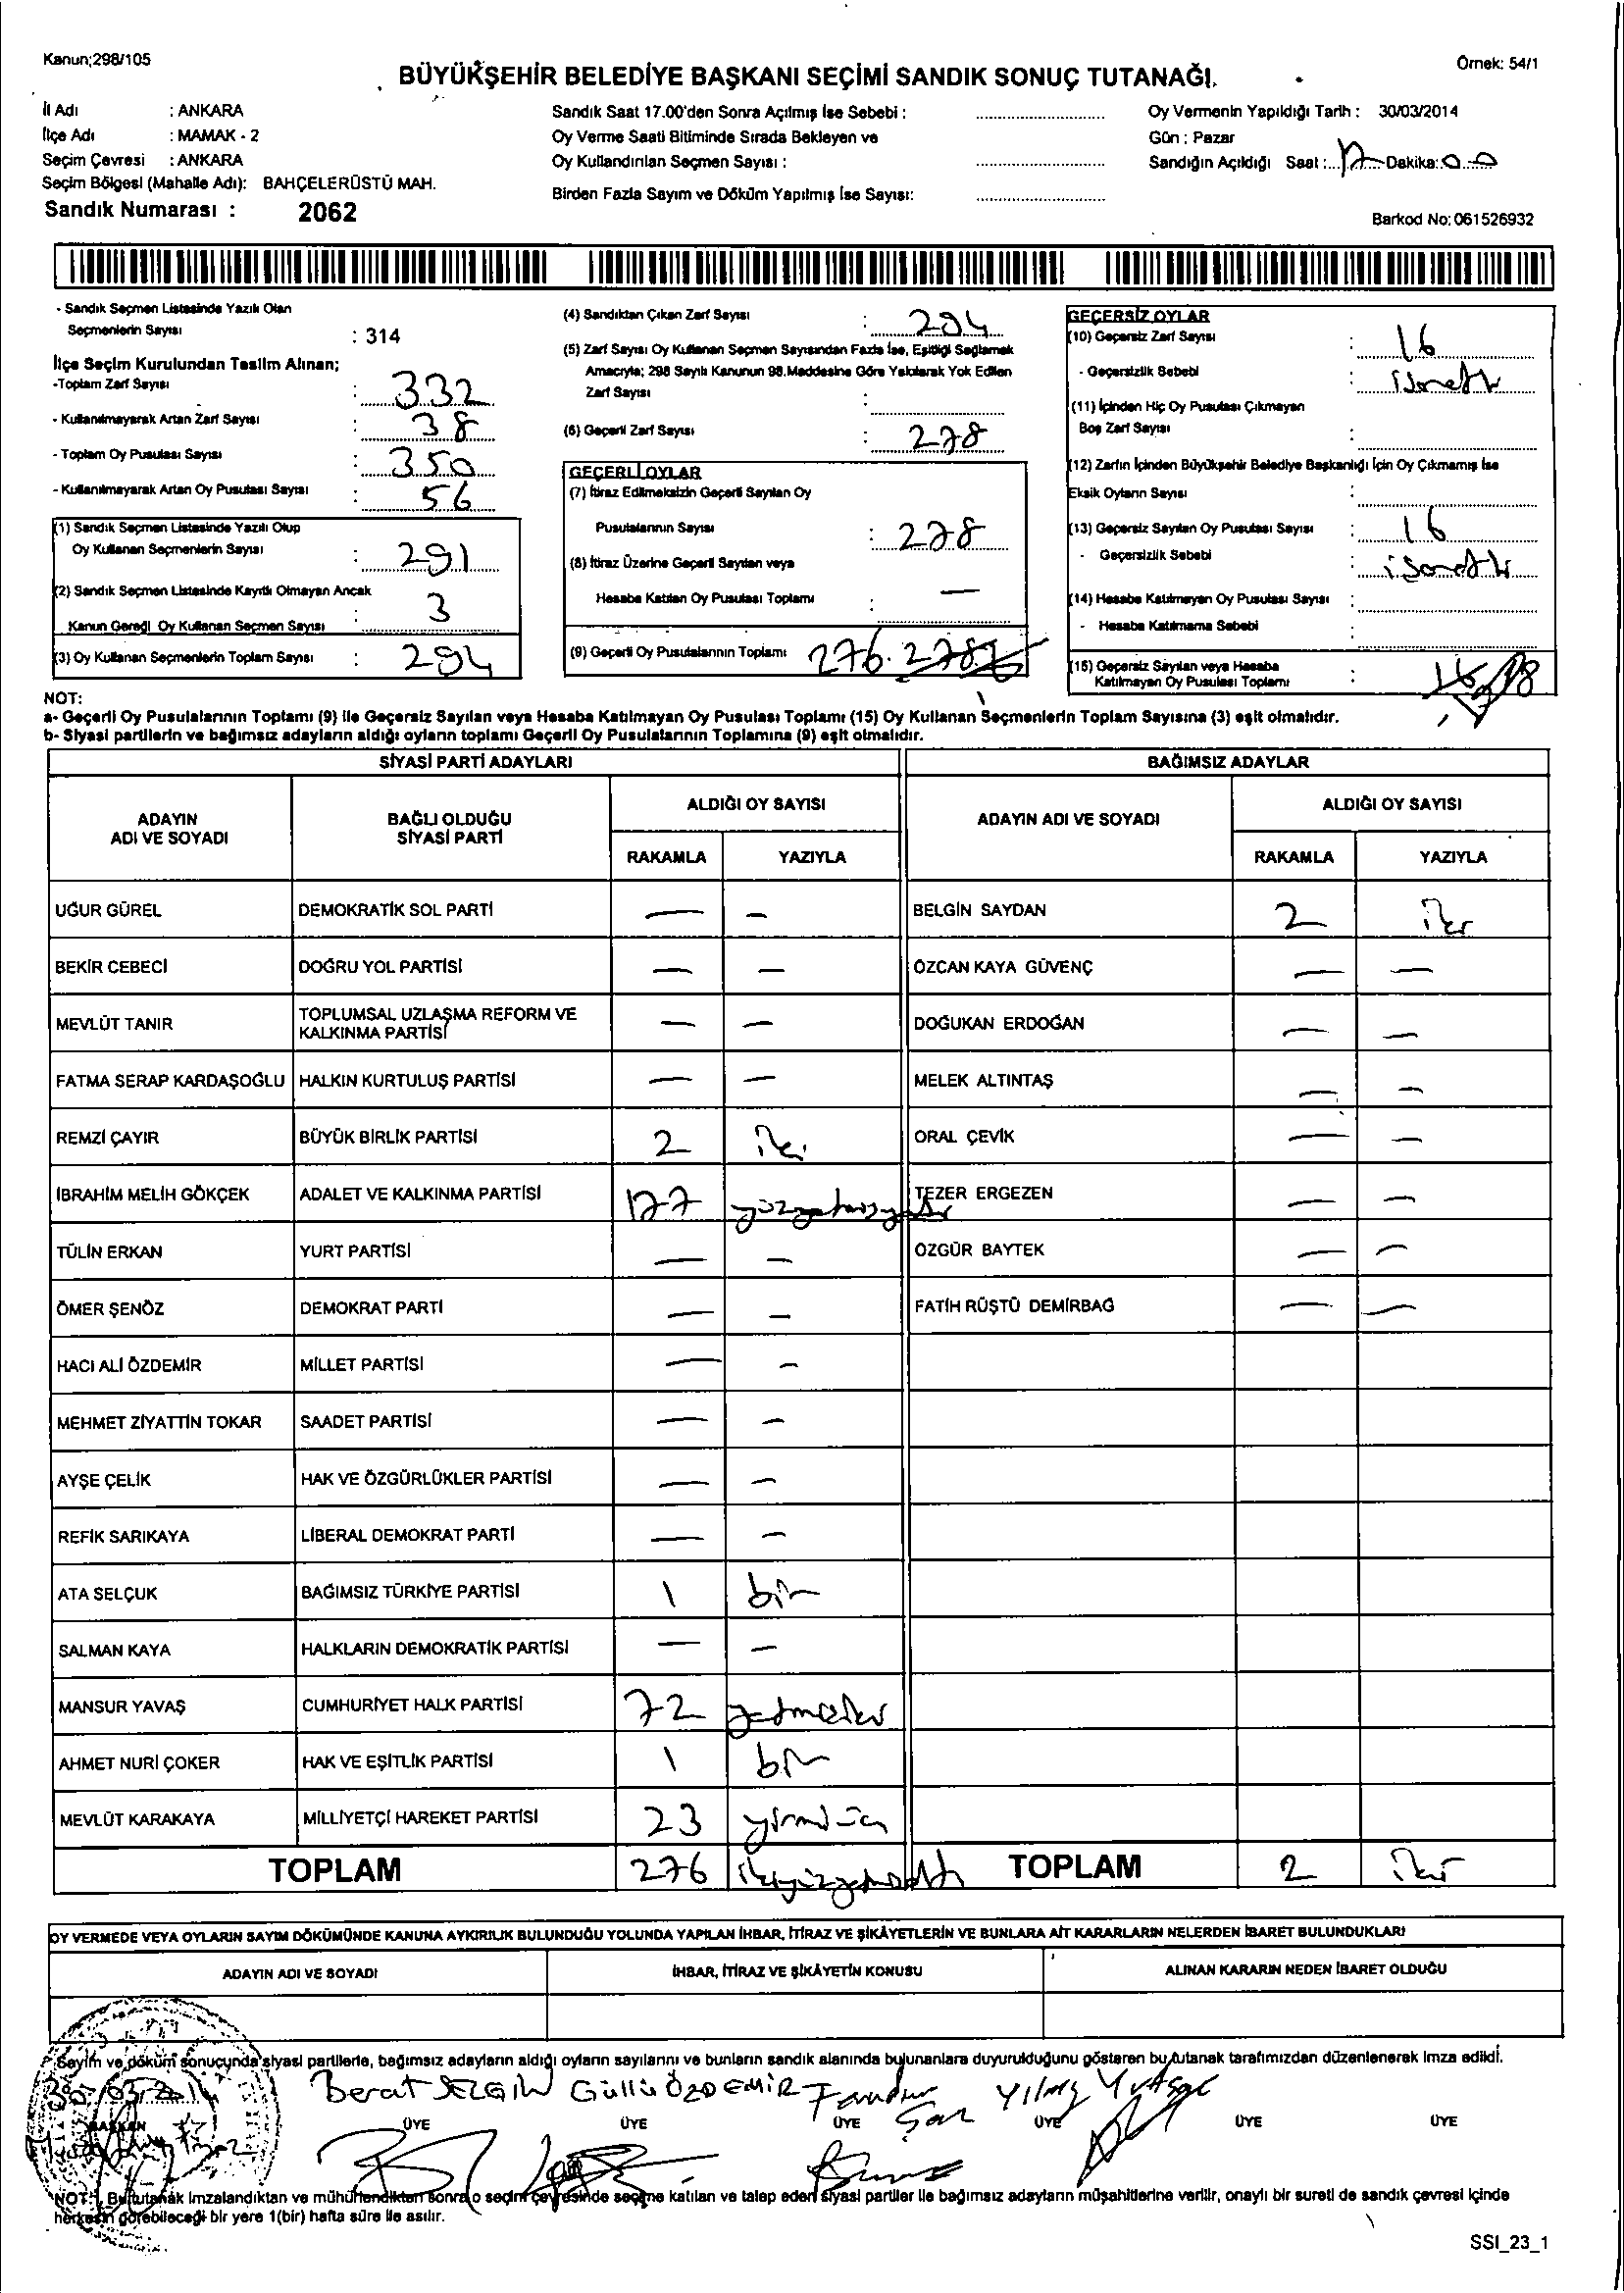 Kanun;298/105
Örnek: 54/1
BÜYÜKŞEHİR BELEDİYE BAŞKANI SEÇİMİ SANDIK SONUÇ TUTANAĞI.
İl Adı : ANKARA
İlçe Adı : MAMAK - 2
Seçim Çevresi : ANKARA
Seçim Bölgesi (Mahalle Adı): BAHÇELERÜSTÜ MAH.
Sandık Numarası : 2062
Sandık Saat 17.00'den Sonra Açılmış İse Sebebi :
Oy Verme Saati Bitiminde Sırada Bekleyen ve
Oy Kullandırılan Seçmen Sayısı :
Birden Fazla Sayım ve Döküm Yapılmış İse Sayısı:
Oy Vermenin Yapıldığı Tarih : 30/03/2014
Gün : Pazar
Sandığın Açıldığı Saat : 17 Dakika: 00
Barkod No: 061526932
- Sandık Seçmen Listesinde Yazılı Olan
Seçmenlerin Sayısı : 314
İlçe Seçim Kurulundan Teslim Alınan;
-Toplam Zarf Sayısı : 332
- Kullanılmayarak Artan Zarf Sayısı : 38
- Toplam Oy Pusulası Sayısı : 350
- Kullanılmayarak Artan Oy Pusulası Sayısı : 56
(1) Sandık Seçmen Listesinde Yazılı Olup
Oy Kullanan Seçmenlerin Sayısı : 291
(2) Sandık Seçmen Listesinde Kayıtlı Olmayan Ancak
Kanun Gereği Oy Kullanan Seçmen Sayısı : 3
(3) Oy Kullanan Seçmenlerin Toplam Sayısı : 294
(4) Sandıktan Çıkan Zarf Sayısı : 294
(5) Zarf Sayısı Oy Kullanan Seçmen Sayısından Fazla İse, Eşitliği Sağlamak
Amacıyla; 298 Sayılı Kanunun 98.Maddesine Göre Yakılarak Yok Edilen
Zarf Sayısı :
(6) Geçerli Zarf Sayısı : 278
GEÇERLİ OYLAR
(7) İtiraz Edilmeksizin Geçerli Sayılan Oy
Pusulalarının Sayısı : 278
(8) İtiraz Üzerine Geçerli Sayılan veya
Hesaba Katılan Oy Pusulası Toplamı : —
(9) Geçerli Oy Pusulalarının Toplamı : 276. 278
GEÇERSİZ OYLAR
(10) Geçersiz Zarf Sayısı : 16
- Geçersizlik Sebebi :
(11) İçinden Hiç Oy Pusulası Çıkmayan
Boş Zarf Sayısı :
(12) Zarfın İçinden Büyükşehir Belediye Başkanlığı İçin Oy Çıkmamış İse
Eksik Oyların Sayısı :
(13) Geçersiz Sayılan Oy Pusulası Sayısı : 16
- Geçersizlik Sebebi :
(14) Hesaba Katılmayan Oy Pusulası Sayısı :
- Hesaba Katılmama Sebebi :
(15) Geçersiz Sayılan veya Hesaba
Katılmayan Oy Pusulası Toplamı : 16 18
NOT:
a- Geçerli Oy Pusulalarının Toplamı (9) ile Geçersiz Sayılan veya Hesaba Katılmayan Oy Pusulası Toplamı (15) Oy Kullanan Seçmenlerin Toplam Sayısına (3) eşit olmalıdır.
b- Siyasi partilerin ve bağımsız adayların aldığı oyların toplamı Geçerli Oy Pusulalarının Toplamına (9) eşit olmalıdır.
SİYASİ PARTİ ADAYLARI
BAĞIMSIZ ADAYLAR
ADAYIN ADI VE SOYADI
BAĞLI OLDUĞU SİYASİ PARTİ
ALDIĞI OY SAYISI
RAKAMLA YAZIYLA
ADAYIN ADI VE SOYADI
ALDIĞI OY SAYISI
RAKAMLA YAZIYLA
UĞUR GÜREL DEMOKRATİK SOL PARTİ — — BELGİN SAYDAN 2 iki
BEKİR CEBECİ DOĞRU YOL PARTİSİ — — ÖZCAN KAYA GÜVENÇ — —
MEVLÜT TANIR TOPLUMSAL UZLAŞMA REFORM VE KALKINMA PARTİSİ — — DOĞUKAN ERDOĞAN — —
FATMA SERAP KARDAŞOĞLU HALKIN KURTULUŞ PARTİSİ — — MELEK ALTINTAŞ — —
REMZİ ÇAYIR BÜYÜK BİRLİK PARTİSİ 2 iki ORAL ÇEVİK — —
İBRAHİM MELİH GÖKÇEK ADALET VE KALKINMA PARTİSİ 177 TEZER ERGEZEN — —
TÜLİN ERKAN YURT PARTİSİ — — ÖZGÜR BAYTEK — —
ÖMER ŞENÖZ DEMOKRAT PARTİ — — FATİH RÜŞTÜ DEMİRBAĞ — —
HACI ALİ ÖZDEMİR MİLLET PARTİSİ — —
MEHMET ZİYATTİN TOKAR SAADET PARTİSİ — —
AYŞE ÇELİK HAK VE ÖZGÜRLÜKLER PARTİSİ — —
REFİK SARIKAYA LİBERAL DEMOKRAT PARTİ — —
ATA SELÇUK BAĞIMSIZ TÜRKİYE PARTİSİ 1 bir
SALMAN KAYA HALKLARIN DEMOKRATİK PARTİSİ — —
MANSUR YAVAŞ CUMHURİYET HALK PARTİSİ 72 yetmişiki
AHMET NURİ ÇOKER HAK VE EŞİTLİK PARTİSİ 1 bir
MEVLÜT KARAKAYA MİLLİYETÇİ HAREKET PARTİSİ 23 yirmiüç
TOPLAM 276 ikiyüzyetmişaltı TOPLAM 2 iki
OY VERMEDE VEYA OYLARIN SAYIM DÖKÜMÜNDE KANUNA AYKIRILIK BULUNDUĞU YOLUNDA YAPILAN İHBAR, İTİRAZ VE ŞİKÂYETLERİN VE BUNLARA AİT KARARLARIN NELERDEN İBARET BULUNDUKLARI
ADAYIN ADI VE SOYADI İHBAR, İTİRAZ VE ŞİKÂYETİN KONUSU ALINAN KARARIN NEDEN İBARET OLDUĞU
Sayım ve döküm sonucunda siyasi partilerle, bağımsız adayların aldığı oyların sayılarını ve bunların sandık alanında bulunanlara duyurulduğunu gösteren bu tutanak tarafımızdan düzenlenerek imza edildi.
30/03/2014 Berat SEZGİN Güllü ÖZDEMİR
BAŞKAN ÜYE ÜYE ÜYE ÜYE ÜYE ÜYE
NOT: Bu tutanak imzalandıktan ve mühürlendikten sonra o seçim çevresinde seçime katılan ve talep eden siyasi partiler ile bağımsız adayların müşahitlerine verilir, onaylı bir sureti de sandık çevresi içinde
herkesin görebileceği bir yere 1(bir) hafta süre ile asılır.
SSI_23_1